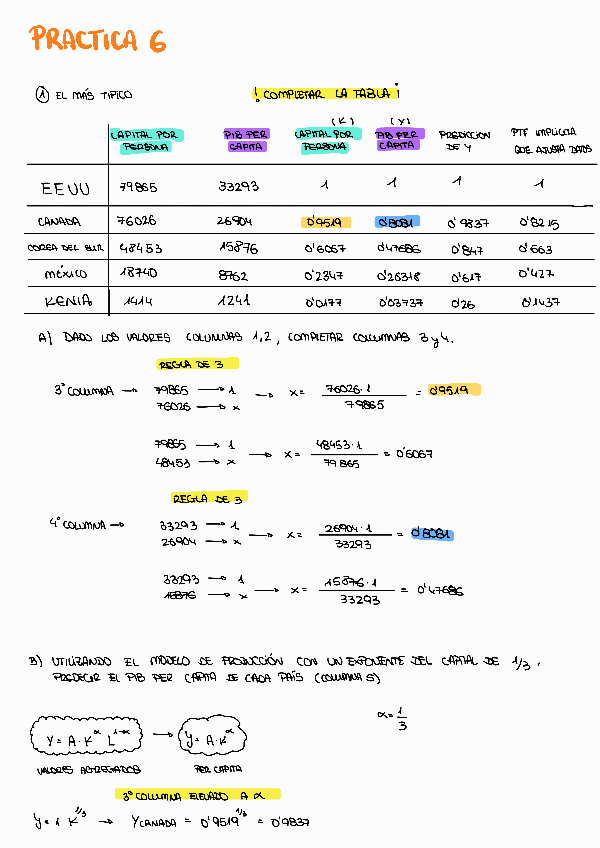 PRACTICA 6
① EL MÁS TIPICO
! COMPLETAR LA TABLA !
(K) (Y)
CAPITAL POR PERSONA PIB PER CAPITA CAPITAL POR PERSONA PIB PER CAPITA PREDICCION DE Y PTF IMPLICITA QUE AJUSTA DATOS
EEUU 79865 33293 1 1 1 1
CANADA 76026 26904 0'9519 0'8081 0'9837 0'8215
COREA DEL SUR 48453 15876 0'6067 0'47686 0'847 0'563
MÉXICO 18740 8762 0'2347 0'26318 0'617 0'427
KENIA 1414 1241 0'0177 0'03737 0'26 0'1437
A) DADO LOS VALORES COLUMNAS 1,2, COMPLETAR COLUMNAS 3 y 4.
REGLA DE 3
3ª COLUMNA → 79865 → 1 → x = 76026·1 / 79865 = 0'9519
76026 → x
79865 → 1 → x = 48453·1 / 79865 = 0'6067
48453 → x
REGLA DE 3
4ª COLUMNA → 33293 → 1 → x = 26904·1 / 33293 = 0'8081
26904 → x
33293 → 1 → x = 15876·1 / 33293 = 0'47686
15876 → x
B) UTILIZANDO EL MODELO DE PRODUCCIÓN CON UN EXPONENTE DEL CAPITAL DE 1/3,
PREDECIR EL PIB PER CAPITA DE CADA PAÍS (COLUMNA 5)
α = 1/3
Y = A·K^α L^1-α → y = A·K^α
VALORES AGREGADOS PER CAPITA
3ª COLUMNA ELEVADO A α
y = 1 K^1/3 → YCANADA = 0'9519^1/3 = 0'9837